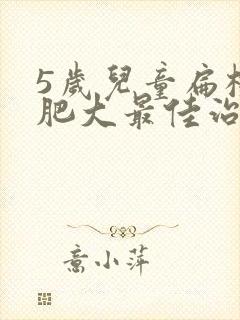 5歲兒童扁
肥大最佳治
喬小萍